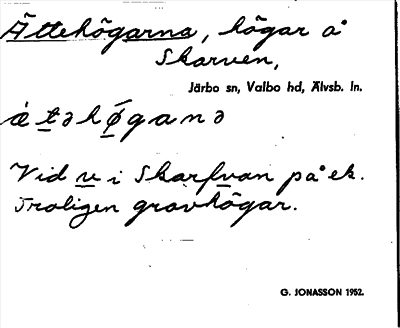 Ättehögarna, högar å
Skarven,
Järbo sn, Valbo hd, Älvsb. ln.
å̀təhø̄́ganə
Vid v i Skarfvan på ek.
Troligen gravhögar.
G. JONASSON 1952.